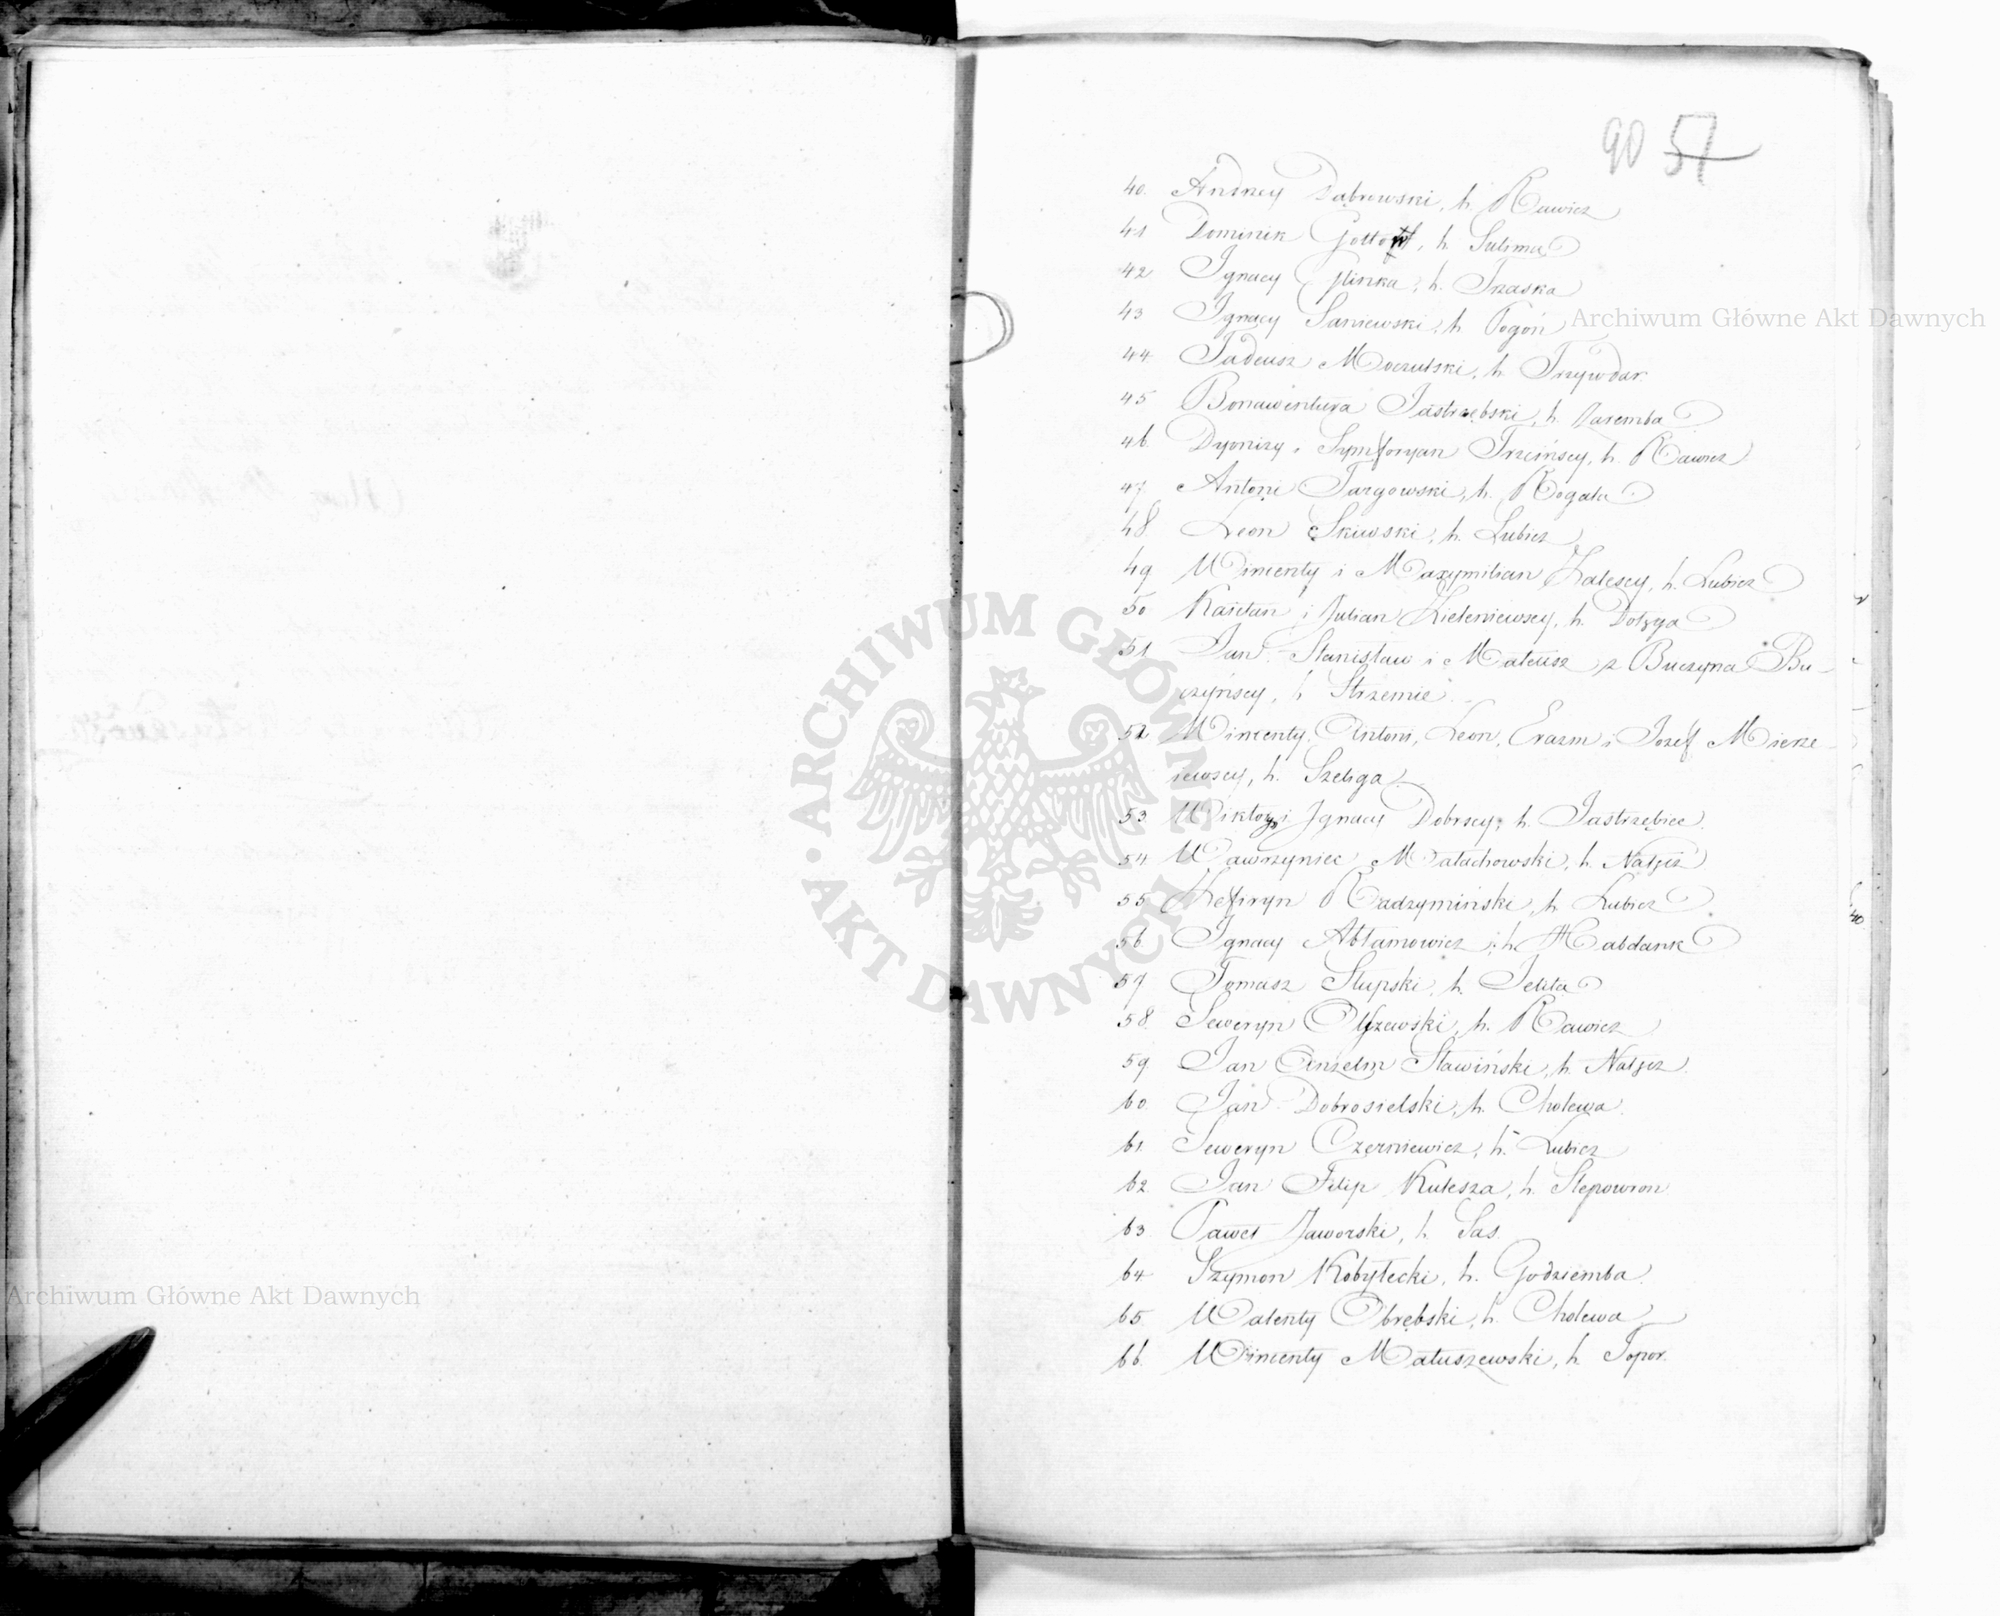 90 57
40. Andrzey Dąbrowski, h. Rawicz
41 Dominik h. Sulima
42 Ignacy Glinka, h. Trzaska
43 Ignacy Saniewski, h. Pogoń
44 Tadeusz Moczulski, h. Trzywdar.
45 Bonawentura Jastrzębski, h. Zaremba
46 Dyonizy i Symforyan Trzcińscy, h. Rawicz
47 Antoni Targowski, h. Rogala
48 Leon Skiwski, h. Lubicz
49 Wincenty i Maxymilian Zalescy, h. Lubicz
50 Kajetan i Julian Zieleniewscy, h. Dołęga
51 Jan Stanisław i Mateusz z Buczyna Bu-
czyńscy, h. Strzemie
52 Wincenty, Antoni, Leon, Erazm i Jozef Mierze-
iewscy, h. Szeliga
53 Wiktor i Ignacy Dobrscy, h. Jastrzębiec
54 Wawrzyniec Małachowski, h. Nałęcz
55 Zefiryn Radzymiński, h. Lubicz
56 Ignacy Abłamowicz, h. Habdank
57 Tomasz Słupski, h. Jelita
58. Seweryn Olszewski, h. Rawicz
59 Jan Anzelm Sławiński, h. Nałęcz.
60. Jan Dobrosielski, h. Cholewa.
61. Seweryn Czerniewicz, h. Lubicz
62. Jan Filip Kulesza, h. Slepowron
63 Paweł Jaworski, h. Sas.
64 Szymon Kobyłecki, h. Godziemba.
65. Walenty Obrębski, h. Cholewa
66. Wincenty Matuszewski, h. Topor.
Archiwum Główne Akt Dawnych
Archiwum Główne Akt Dawnych
ARCHIWUM GŁÓWNE AKT DAWNYCH